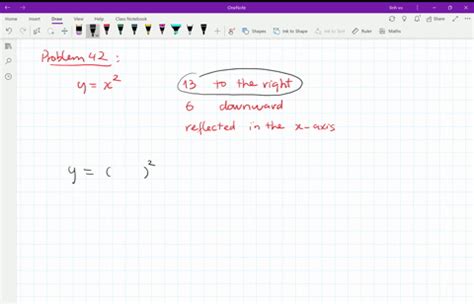 OneNote
File Home Insert Draw View Help Class Notebook
Shapes Ink to Shape Ink to Text Ruler Maths
Problem 42 :
y = x² 13 to the right
6 downward
reflected in the x-axis
y = ( )²